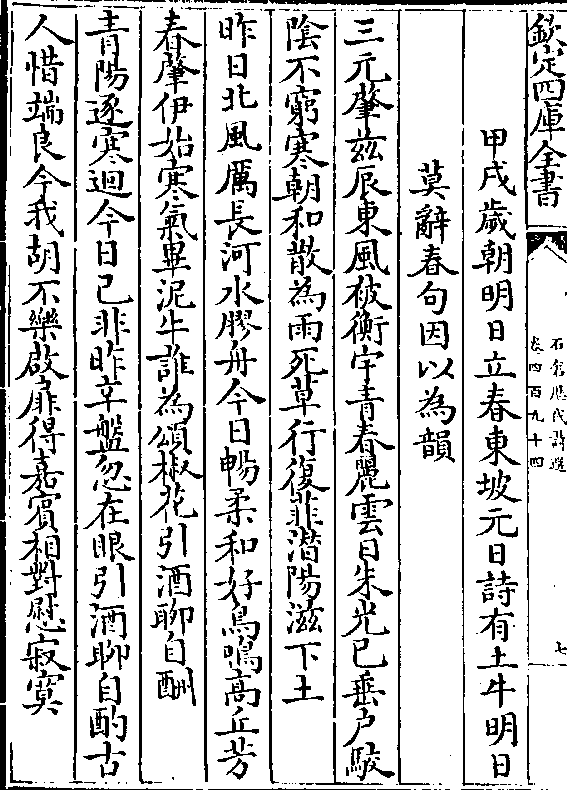 欽定四庫全書
石倉歷代詩選
卷四百九十四
七
甲戌歲朝明日立春東坡元日詩有土牛明日
莫辭春句因以為韻
三元肇兹辰東風被衡宇青春麗雲日朱光已垂户駸
陰不窮寒朝和散為雨死草行復菲潛陽滋下土
昨日北風厲長河水膠舟今日暢柔和好鳥鳴高丘芳
春肇伊始寒氣畢泥牛誰為頌椒花引酒聊自酬
青陽逐寒迴今日已非昨辛盤忽在眼引酒聊自酌古
人惜端良今我胡不樂啟扉得嘉賓相對慰寂寞